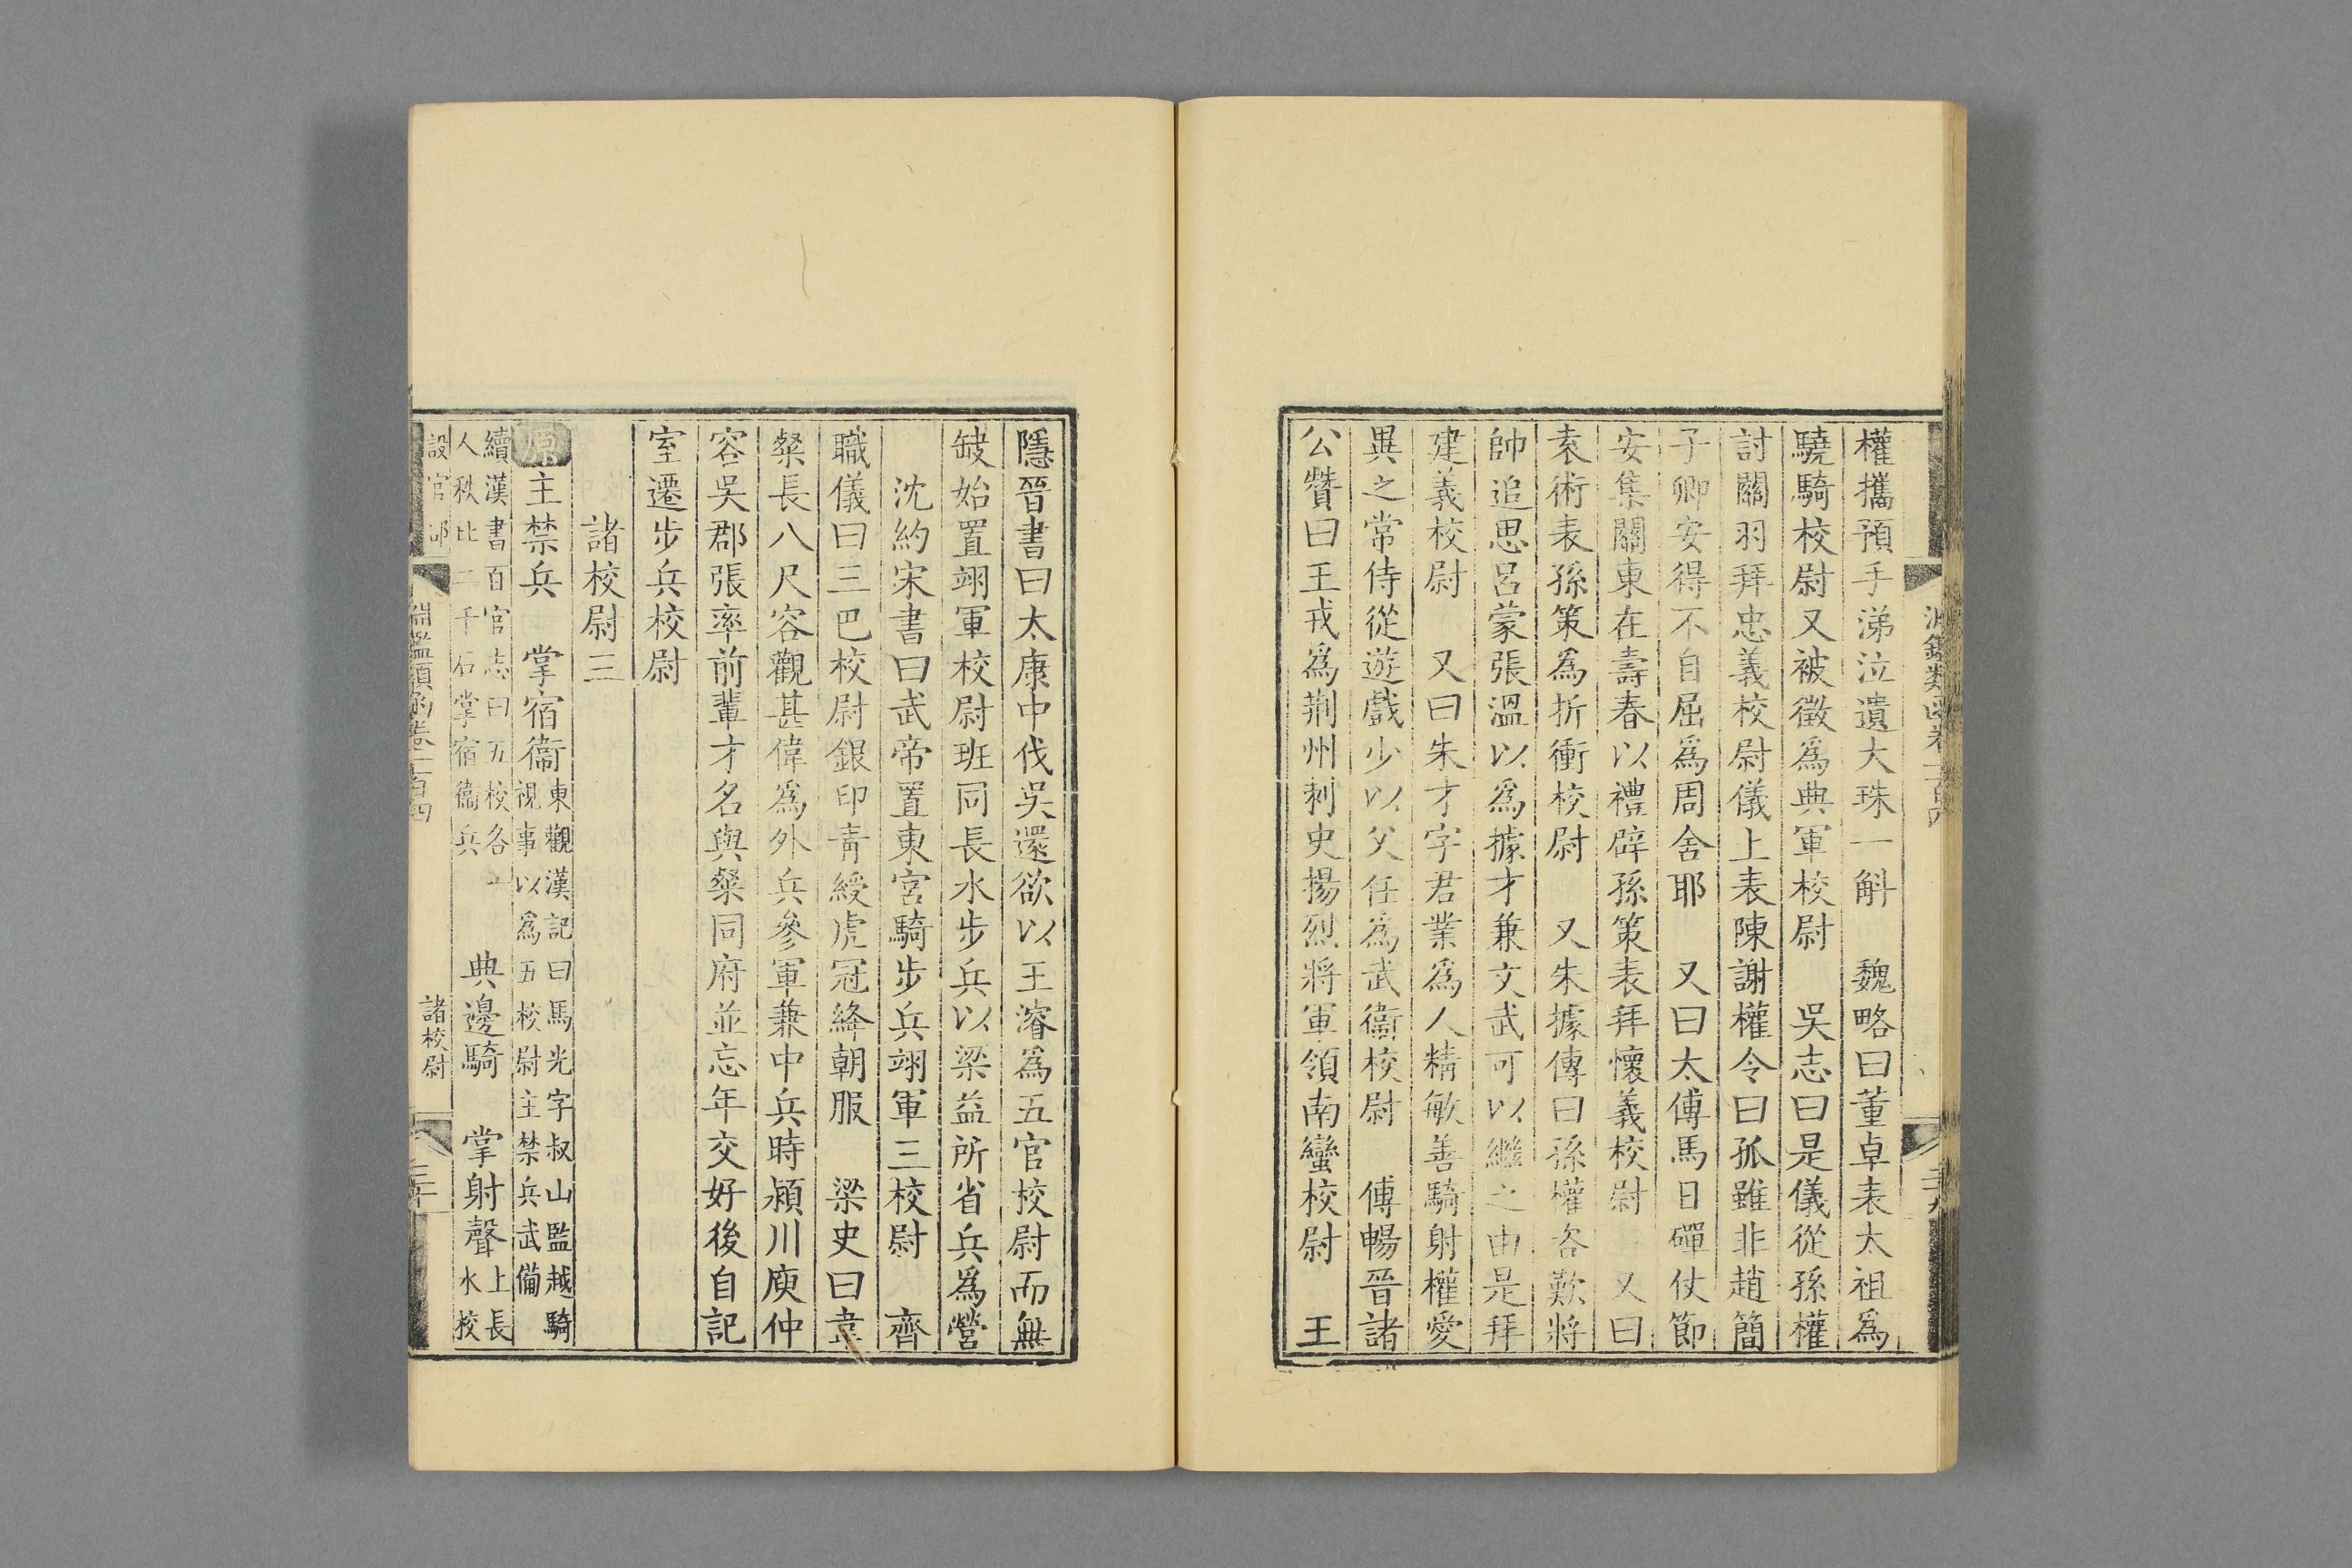 權攜預手涕泣遺大珠一斛　魏略曰董卓表太祖爲
驍騎校尉又被徵爲典軍校尉　吳志曰是儀從孫權
討關羽拜忠義校尉儀上表陳謝權令曰孤雖非趙簡
子卿安得不自屈爲周舍耶　又曰太傅馬日磾仗節
安集關東在壽春以禮辟孫策表拜懷義校尉　又曰
袁術表孫策爲折衝校尉　又朱據傳曰孫權咨歎將
帥追思呂蒙張溫以爲據才兼文武可以繼之由是拜
建義校尉　又曰朱才字君業爲人精敏善騎射權愛
異之常侍從遊戲少以父任爲武衞校尉　傅暢晉諸
公贊曰王戎爲荆州刺史揚烈將軍領南蠻校尉　王
隱晉書曰太康中伐吳還欲以王濬爲五官校尉而無
缺始置翊軍校尉班同長水步兵以梁益所省兵爲營
沈約宋書曰武帝置東宮騎步兵翊軍三校尉　齊
職儀曰三巴校尉銀印青綬虎冠絳朝服　梁史曰韋
粲長八尺容觀甚偉爲外兵參軍兼中兵時潁川庾仲
容吳郡張率前輩才名與粲同府並忘年交好後自記
室遷步兵校尉
諸校尉三
原主禁兵　掌宿衞
東觀漢記曰馬光字叔山監越騎
視事以爲五校尉主禁兵武備
續漢書百官志曰五校各一
人秩比二千石掌宿衞兵
典邊騎　掌射聲
上長
水校
設官部
淵鑑類函卷一百四
諸校尉
三十